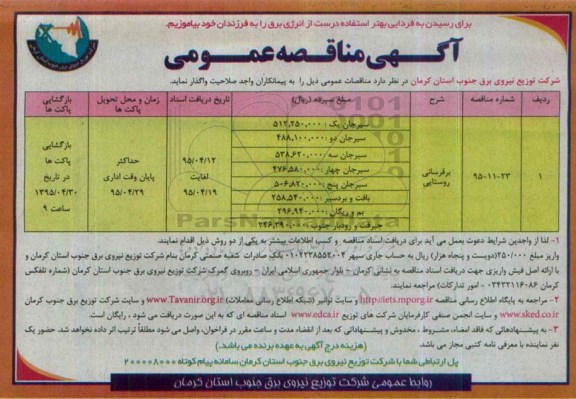 برای رسیدن به فردایی بهتر استفاده درست از انرژی برق را به فرزندان خود بیاموزیم.
آگهی مناقصه عمومی
شرکت توزیع نیروی برق جنوب استان کرمان در نظر دارد مناقصات عمومی ذیل را به پیمانکاران واجد صلاحیت واگذار نماید.
ردیف
شماره مناقصه
شرح
مبلغ سپرده (ریال)
تاریخ دریافت اسناد
زمان و محل تحویل پاکت ها
بازگشایی پاکت ها
۱
۹۵-۱۱-۲۳
برقرسانی روستایی
سیرجان یک : ۵۱۲,۲۵۰,۰۰۰
سیرجان دو : ۴۸۸,۱۰۰,۰۰۰
سیرجان سه : ۵۳۸,۶۲۰,۰۰۰
سیرجان چهار : ۴۷۶,۵۸۰,۰۰۰
سیرجان پنج : ۵۰۶,۸۲۰,۰۰۰
بافت و بردسیر : ۲۵۸,۵۴۰,۰۰۰
بم و ریگان : ۲۹۶,۹۴۰,۰۰۰
جیرفت و رودبار جنوب : ۲۴۶,۳۹۰,۰۰۰
۹۵/۰۴/۱۲
لغایت
۹۵/۰۴/۱۹
حداکثر
پایان وقت اداری
۹۵/۰۴/۲۹
بازگشایی
پاکت ها
در تاریخ
۱۳۹۵/۰۴/۳۰
ساعت ۹
۱- لذا از واجدین شرایط دعوت بعمل می آید برای دریافت اسناد مناقصه و کسب اطلاعات بیشتر به یکی از دو روش ذیل اقدام نمایند.
واریز مبلغ ۲۵۰/۰۰۰ (دویست و پنجاه هزار) ریال به حساب جاری سپهر ۰۱۰۴۲۳۸۵۵۲۰۰۴ بانک صادرات شعبه صنعتی کرمان بنام شرکت توزیع نیروی برق جنوب استان کرمان و
با ارائه اصل فیش واریزی جهت دریافت اسناد مناقصه به نشانی کرمان - بلوار جمهوری اسلامی ایران - روبروی گمرک شرکت توزیع نیروی برق جنوب استان کرمان (شماره تلفکس
۰۳۴۳۲۱۱۶۰۸۶ - امور تدارکات) مراجعه نمایند.
۲- مراجعه به پایگاه اطلاع رسانی مناقصه http://iets.mporg.ir و سایت توانیر (شبکه اطلاع رسانی معاملات) www.Tavanir.org.ir و سایت شرکت توزیع برق جنوب کرمان
www.sked.co.ir و سایت انجمن صنفی کارفرمایان شرکت های توزیع www.edca.ir اسناد مناقصه ای که به این صورت دریافت می شود ، رایگان است.
۳- به پیشنهادهائی که فاقد امضاء، مشروط ، مخدوش و پیشنهاداتی که بعد از انقضاء مدت و ساعت مقرر در فراخوان، واصل می شود مطلقاً ترتیب اثر داده نخواهد شد. حضور یک
نفر نماینده با معرفی نامه کتبی مجاز می باشد.
(هزینه درج آگهی به عهده برنده می باشد.)
پل ارتباطی شما با شرکت توزیع نیروی برق جنوب استان کرمان سامانه پیام کوتاه ۲۰۰۰۰۸۰۰۰
روابط عمومی شرکت توزیع نیروی برق جنوب استان کرمان